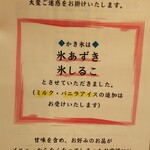 大変ご迷惑をお掛けいたします。
◆かき氷は◆
氷あずき
氷しるこ
とさせていただきました。
(ミルク・バニラアイスの追加は
お受けいたします)
甘味を含め、お好みのお品が